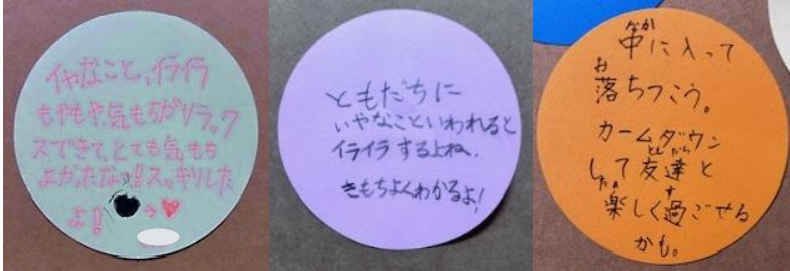 イヤなこと、イライラ
もやもや、気もちがリラック
スできて、とても気もち
よかったな!!スッキリした
よ!! ♥
ともだちに
いやなこといわれると
イライラするよね.
きもちよくわかるよ!
なか
中に入って
お
落ちつこう。
カームダウン
ともだち
して友達と
たの す
楽しく過ごせる
かも。